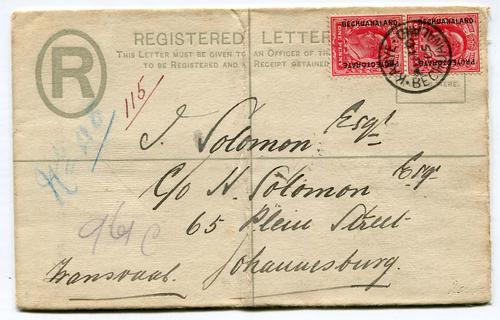 REGISTERED LETTER
THIS LETTER MUST BE GIVEN TO AN OFFICER OF THE
TO BE REGISTERED AND A RECEIPT OBTAINED
HERE.
R
BECHUANALAND
PROTECTORATE
BECHUANALAND
PROTECTORATE
115
J. Solomon Esqr
C/o H. Solomon Esqr
65 Plein Street
Johannesburg.
Transvaal.